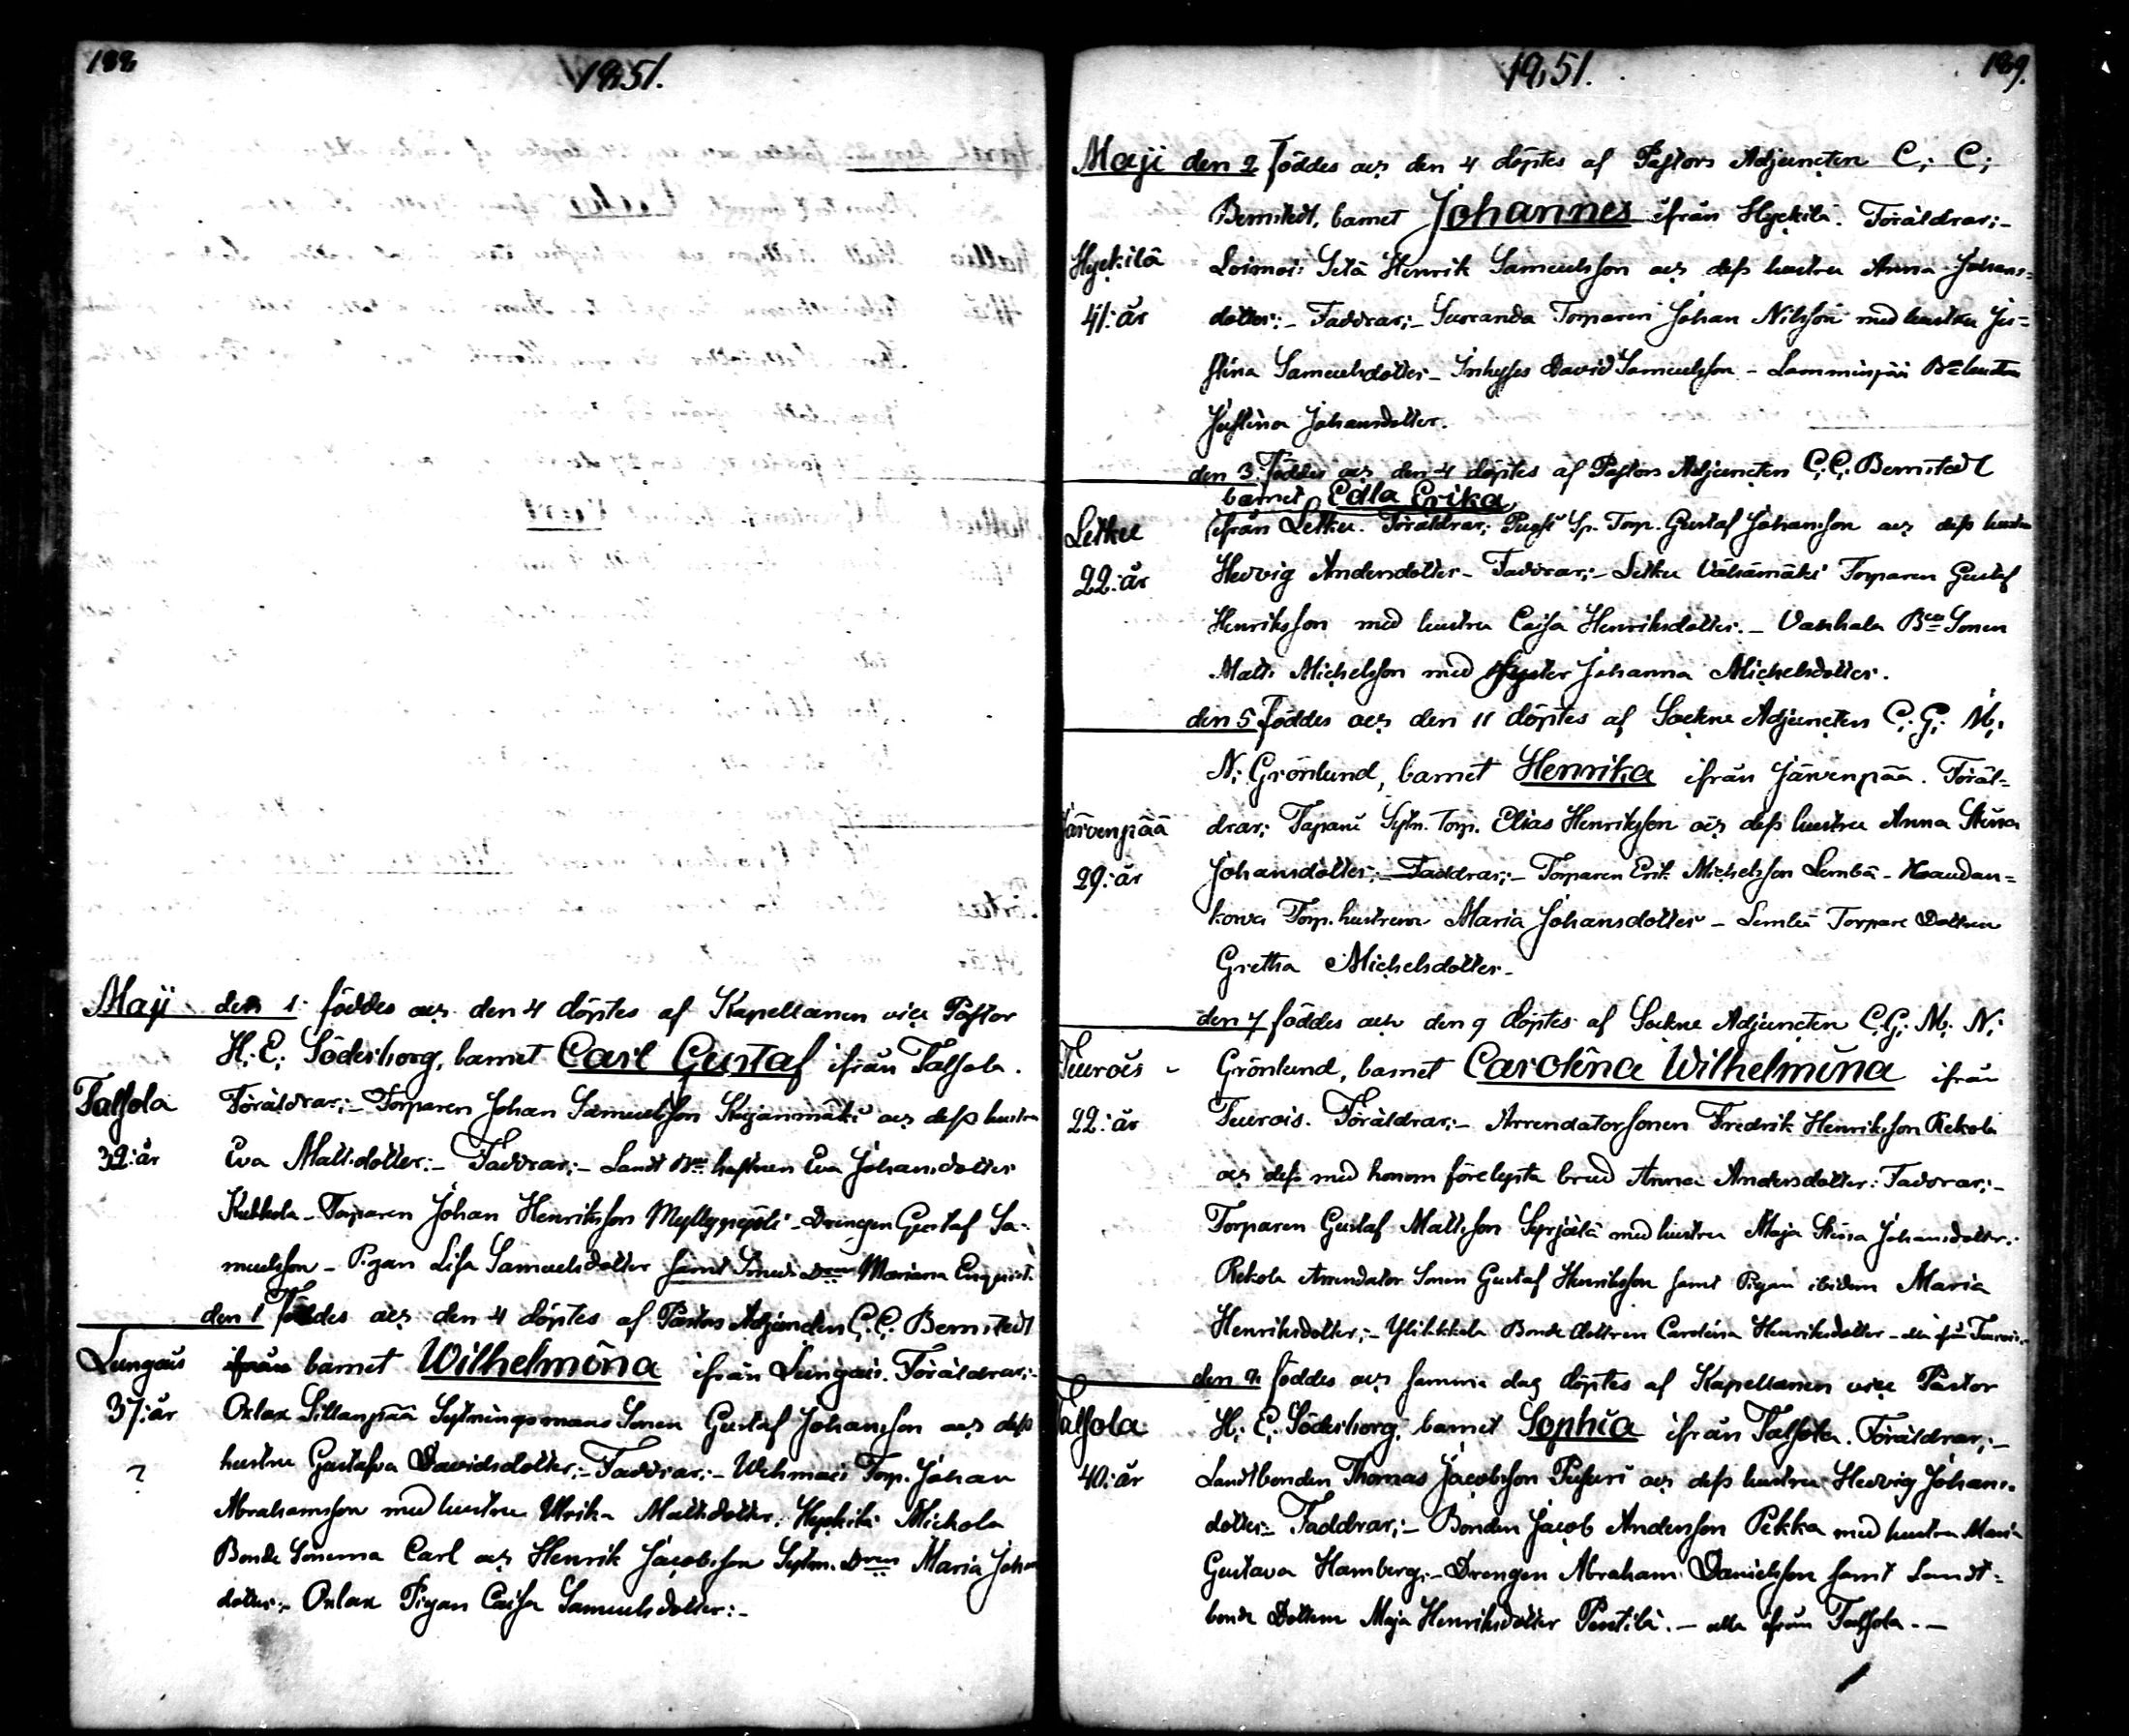 188
1851.
Maji den 1 föddes och den 4 döptes af Kapellanen vice Pastor
H. E. Söderborg, barnet Carl Gustaf ifrån Talsola.
Talsola
Föräldrar:- Torparen Johan Samuelsson och dess hustru
32: år
Eva Mattsdotter:- Faddrar:- Eva Johansdotter
Torparen Johan Henriksson Drengen Gustaf Sa-
muelsson - Pigan Lisa Samuelsdotter samt Mariana Enqvist.
den 1 föddes och den 4 döptes af Pastors Adjuncten C. C. Bernstedt
barnet Wilhelmina ifrån Föräldrar:-
37: år
Sillanpää Sytningsmans Sonen Gustaf Johansson och dess
?
hustru Gustafva Davidsdotter:- Faddrar:- Torp. Johan
Abrahamsson med hustru Ulrika Mattsdotter. Hyckilä Michola
Bonde Sönerna Carl och Henrik Jacobsson Maria Johans
dotter:- Pigan Caisa Samuelsdotter:-
189.
1851.
Maji den 2 föddes och den 4 döptes af Pastors Adjuncten C. C.
Bernstedt, barnet Johannes ifrån Hyckilä. Föräldrar:-
Hyckilä
Henrik Samuelsson och dess hustru Anna Johans-
41: år
dotter:- Faddrar:- Torparen Johan Nilsson med hustru Ju-
stina Samuelsdotter - Inhyses David Samuelsson - Lamminpää hustru
Justina Johansdotter.
den 3 föddes och den 4 döptes af Pastors Adjuncten C. C. Bernstedt
barnet Edla Erika
Letku
ifrån Letku. Föräldrar: Torp. Gustaf Johansson och dess hustru
22: år
Hedvig Andersdotter - Faddrar:- Letku Välsämäki Torparen Gustaf
Henriksson med hustru Caisa Henriksdotter. - Vanhala Sonen
Matts Michelsson med syster Johanna Michelsdotter.
den 5 föddes och den 11 döptes af Sockne Adjuncten C. G. M.
N. Grönlund, barnet Henrika ifrån Järvenpää. Föräl-
Järvenpää
drar: Tapani Torp. Elias Henriksson och dess hustru Anna Stina
29: år
Johansdotter:- Faddrar:- Torparen Erik Michelsson Haudan-
korva Torp. hustrun Maria Johansdotter - Torpare Dottren
Gretha Michelsdotter -
den 7 föddes och den 9 döptes af Sockne Adjuncten C. G. M. N.
Teurois
Grönlund, barnet Carolina Wilhelmina ifrån
22: år
Teurois. Föräldrar:- Arrendatorsonen Fredrik Henriksson Rekola
och dess med honom förelofta brud Anna Andersdotter: Faddrar:-
Torparen Gustaf Mattsson Syrjälä med hustru Maja Stina Johansdotter.
Rekola Arrendator Sonen Gustaf Henriksson samt Pigan ibidem Maria
Henriksdotter:- Bonde dottren Carolina Henriksdotter - alla ifrån Teurois.
föddes och samma dag döptes af Kapellanen vice Pastor
Talsola
H. E. Söderborg, barnet Sophia ifrån Talsola. Föräldrar:-
40: år
Landtbonden Thomas Jacobsson och dess hustru Hedvig Johans-
dotter:- Faddrar:- Bonden Jacob Andersson Pekka med hustru Maria
Gustava Hamberg:- Drengen Abraham Danielsson samt Landt-
bonde Dottern Maja Henriksdotter Penttilä. - alla ifrån Talsola. -